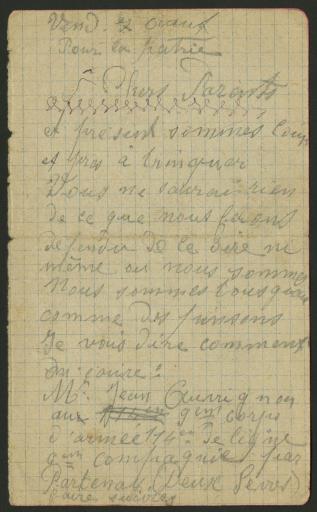 Vend. 7 Aout
Pour la patrie
Chers Parents
et présent sommes tous
et fres à tringuer
Vous ne saurai rien
de ce que nous ferons
défendu de le dire ni
même ou nous sommes
Nous sommes tous gais
comme des pinsons
Je vous dire comment
M. Jean Auvrignon
aux 9em corps
d'armée 114e de ligne
em compagnie par
Partenay (Deux Sevres)
faire suivre